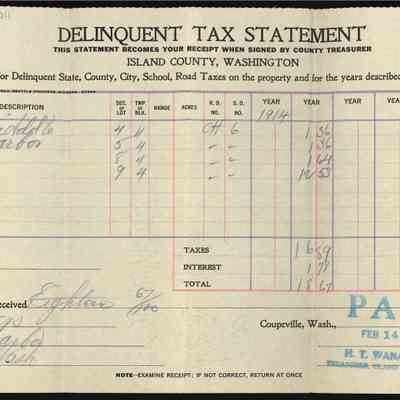 DELINQUENT TAX STATEMENT
THIS STATEMENT BECOMES YOUR RECEIPT WHEN SIGNED BY COUNTY TREASURER
ISLAND COUNTY, WASHINGTON
for Delinquent State, County, City, School, Road Taxes on the property and for the years described
DESCRIPTION SEC. OR LOT TWP. OR BLK. RANGE ACRES R. D. NO. S. D. NO. YEAR YEAR YEAR YEAR
1914
4 4 CH 6 1 36
arbor 5 4 " " 1 36
8 4 " " 1 64
9 4 " " 12 53
TAXES 16 89
INTEREST 1 78
TOTAL 18 67
eceived Eighteen 67/100
Coupeville, Wash.,
PA
FEB 14
H. T. WANA
TREASURER ISLAND
NOTE—EXAMINE RECEIPT; IF NOT CORRECT, RETURN AT ONCE